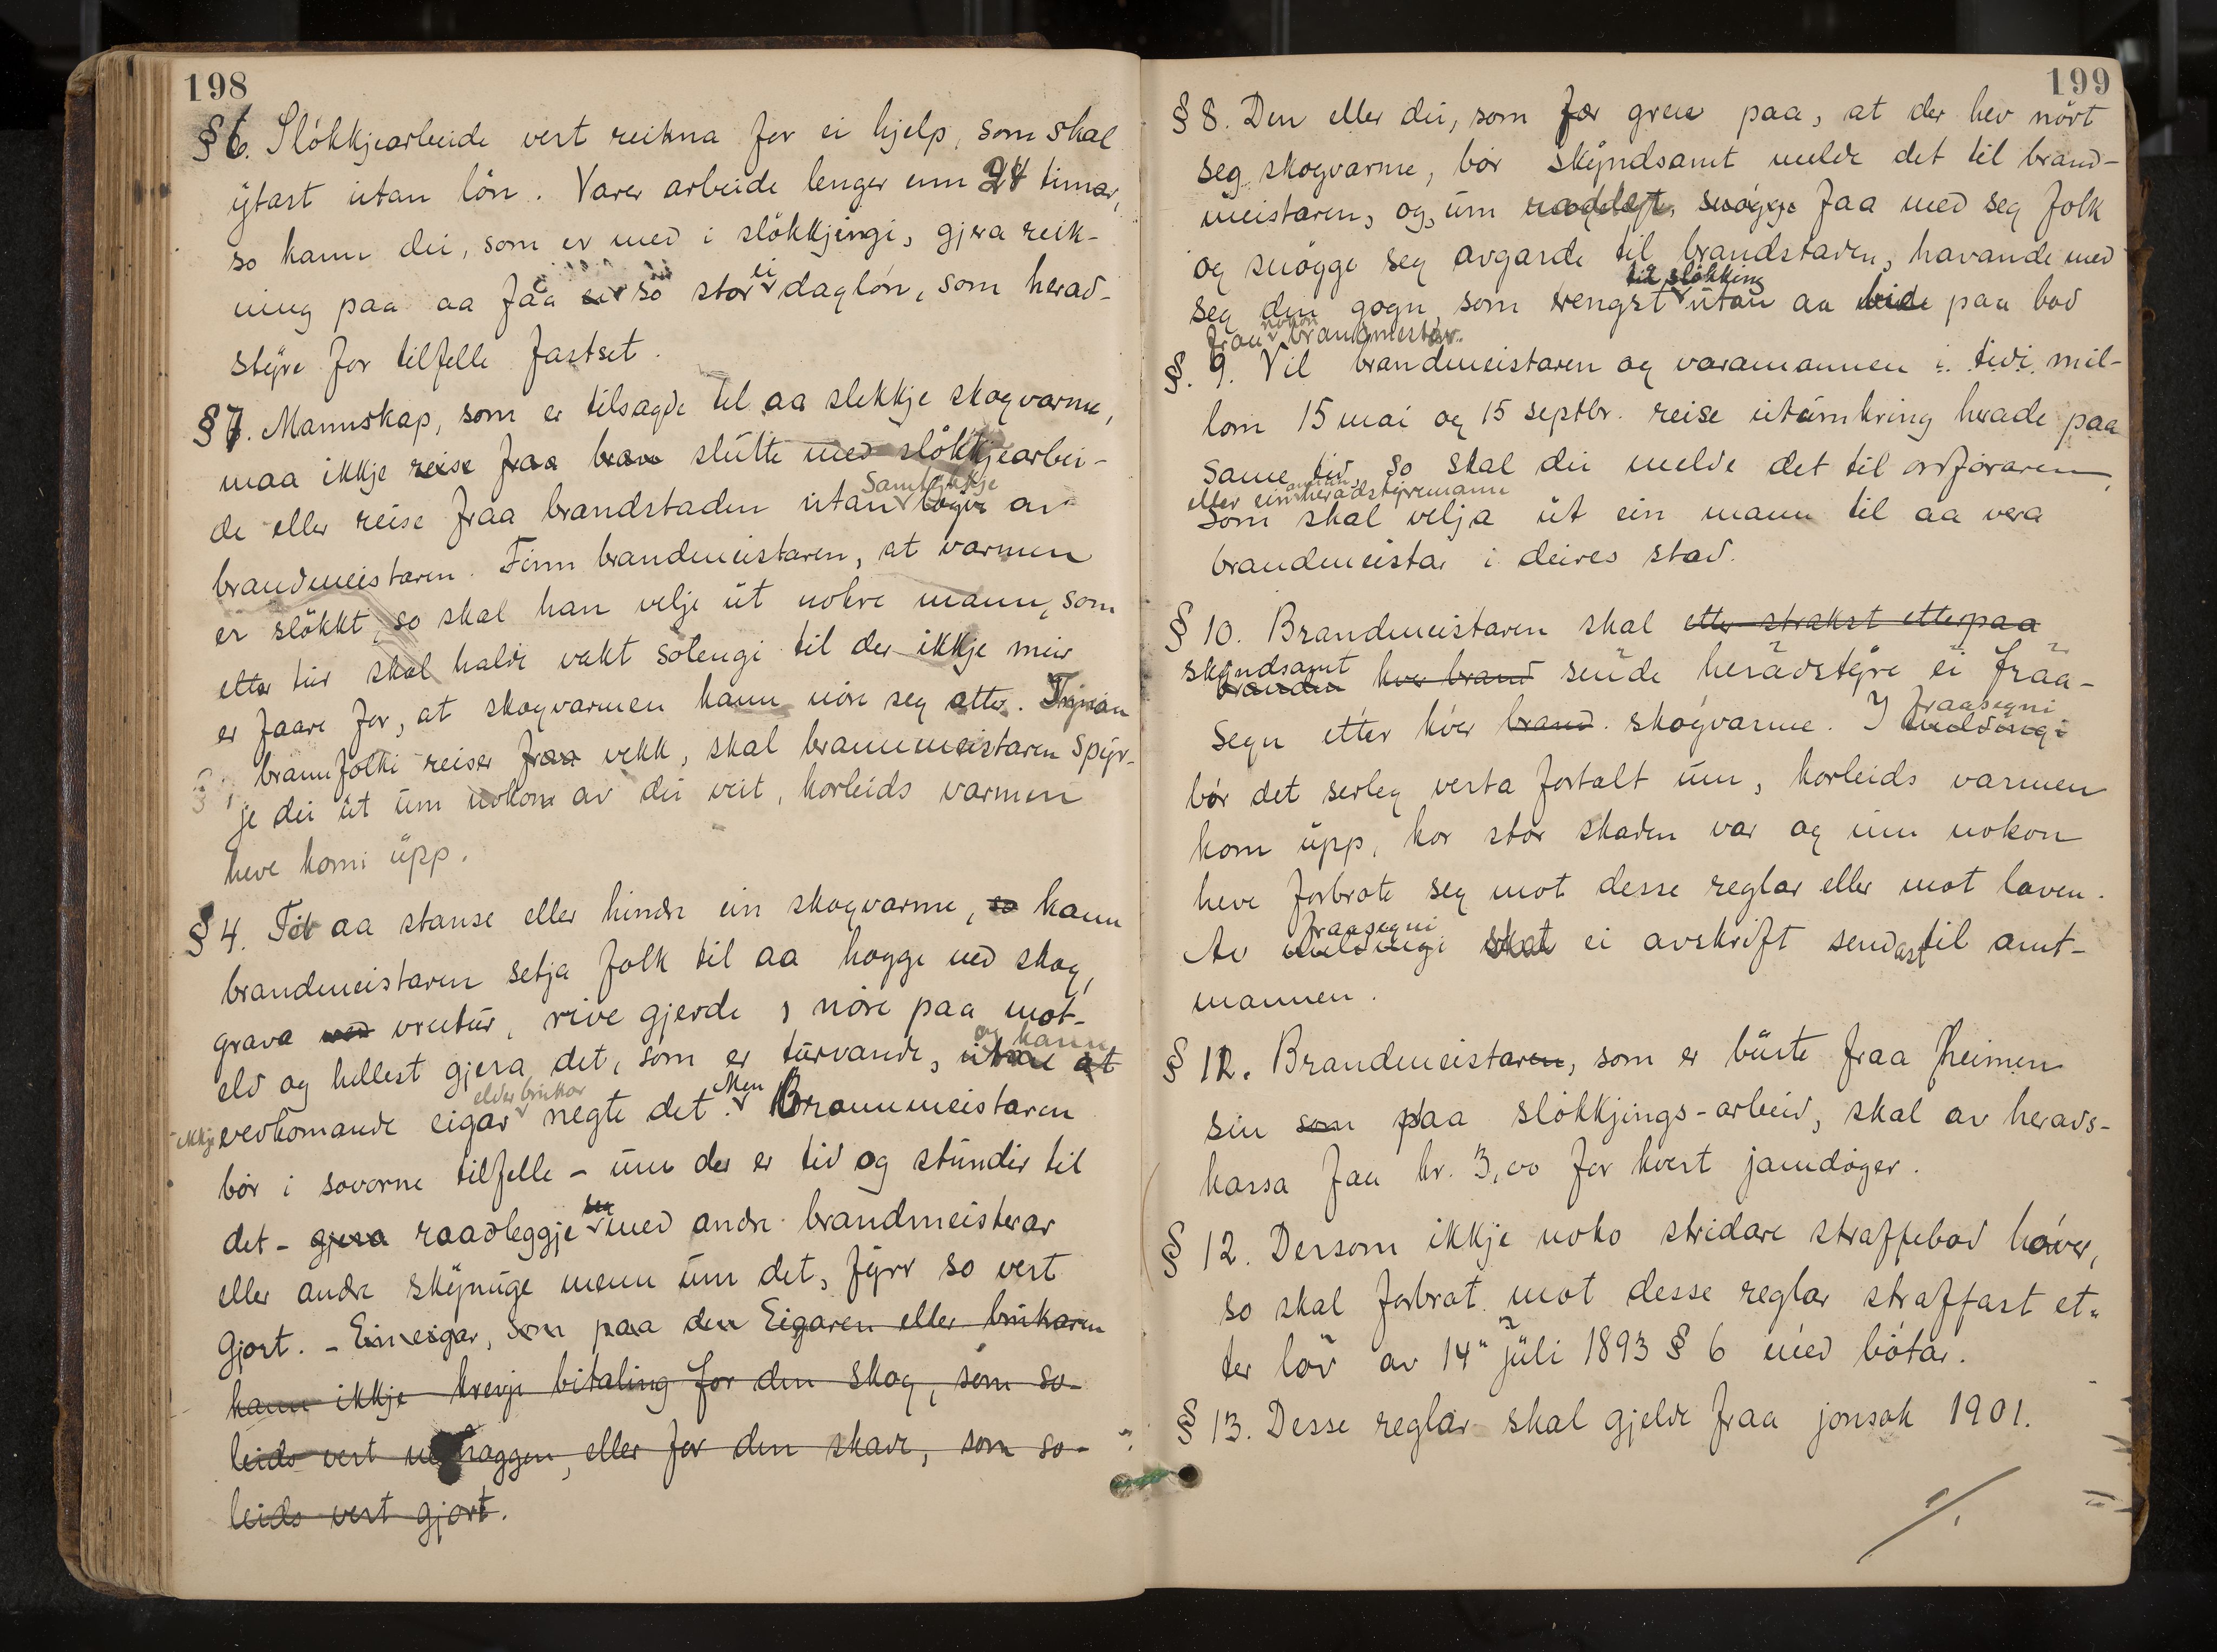 198
§ 6. Slökkjearbeide vert reikna for ei hjelp, som skal
ytast utan lön. Varer arbeide lenger enn 24 timar,
so kann dei, som er med i slökkjingi, gjera reik-
ning paa aa faa ei so stor daglön, som herad-
styre for tilfelle fastset.
§ 7. Mannskap, som er tilsagde til aa slekkje skogvarme,
maa ikkje reise fraa slutte med slökkjearbei-
Samtykkje
de eller reise fraa brandstaden utan av
brandmeistaren. Finn brandmeistaren, at varmen
er slökkt, so skal han velje ut nokre mann, som
etter tur skal halde vakt solengi til der ikkje meir
er faare for, at skogvarmen kann nöre seg atter.
brannfolki reiser fraa vekk, skal brannmeistaren spyr-
je dei ut um nokon av dei veit, korleids varmen
heve komi upp.
§ 4. Til aa stanse eller hindre ein skogvarme, so kann
brandmeistaren setja folk til aa hogge ned skog,
grava ved vrutur, rive gjerde, nöre paa mot-
og kann
eld og hellest gjera det, som er turvande, utan at
elder brukar
ikkje vedkomande eigar negte det. Men Brannmeistaren
bör i sovorne tilfelle – um der er tid og stunder til
det – gjera raadleggje seg med andre brandmeisterar
eller andre skynuge menn um det, fyrr so vert
gjort. – Ein eigar, som paa den Eigaren eller brukaren
kann ikkje krevje bitaling for den skog, som so-
leids vert nedhoggen, eller for den skade, som so-
leids vert gjort.
199
§ 8. Den eller dei, som fær greie paa, at der hev nört
seg skogvarme, bör skyndsamt melde det til brand-
meistaren, og, um raadlegt, snögge faa med seg folk
og snögge seg avgarde til brandstaden, havande med
til slökking
seg den gogn, som trengst utan aa bide paa bod
fraa nokon brandmestar.
§. 9. Vil brandmeistaren og varamannen i tidi mil-
lom 15 mai og 15 septbr. reise utumkring herade paa
same tid, so skal dei melde det til ordföraren,
eller ein annan heradstyremann
som skal velja ut ein mann til aa vera
brandmeistar i deires stad.
§ 10. Brandmeistaren skal etter strakst etterpaa
skyndsamt
branden kvar brand sende heradstyre ei fraa-
fraasegni
segn etter kver brand. skogvarme. I meldingi
bör det serleg verta fortalt um, korleids varmen
kom upp, kor stor skaden var og um nokon
heve forbrote seg mot desse reglar eller mot loven.
fraasegni
Av meldingi skal ei avskrift sendast til amt-
mannen.
§ 12. Brandmeistaren, som er burte fraa heimen
sin som paa slökkjings-arbeid, skal av herads-
kassa faa kr. 3,00 for kvert jamdöger.
§ 12. Dersom ikkje noko stridare straffebod höver,
so skal forbrot mot desse reglar straffast et-
ter lov av 14" juli 1893 § 6 med böter.
§ 13. Desse reglar skal gjelde fraa jonsok 1901.